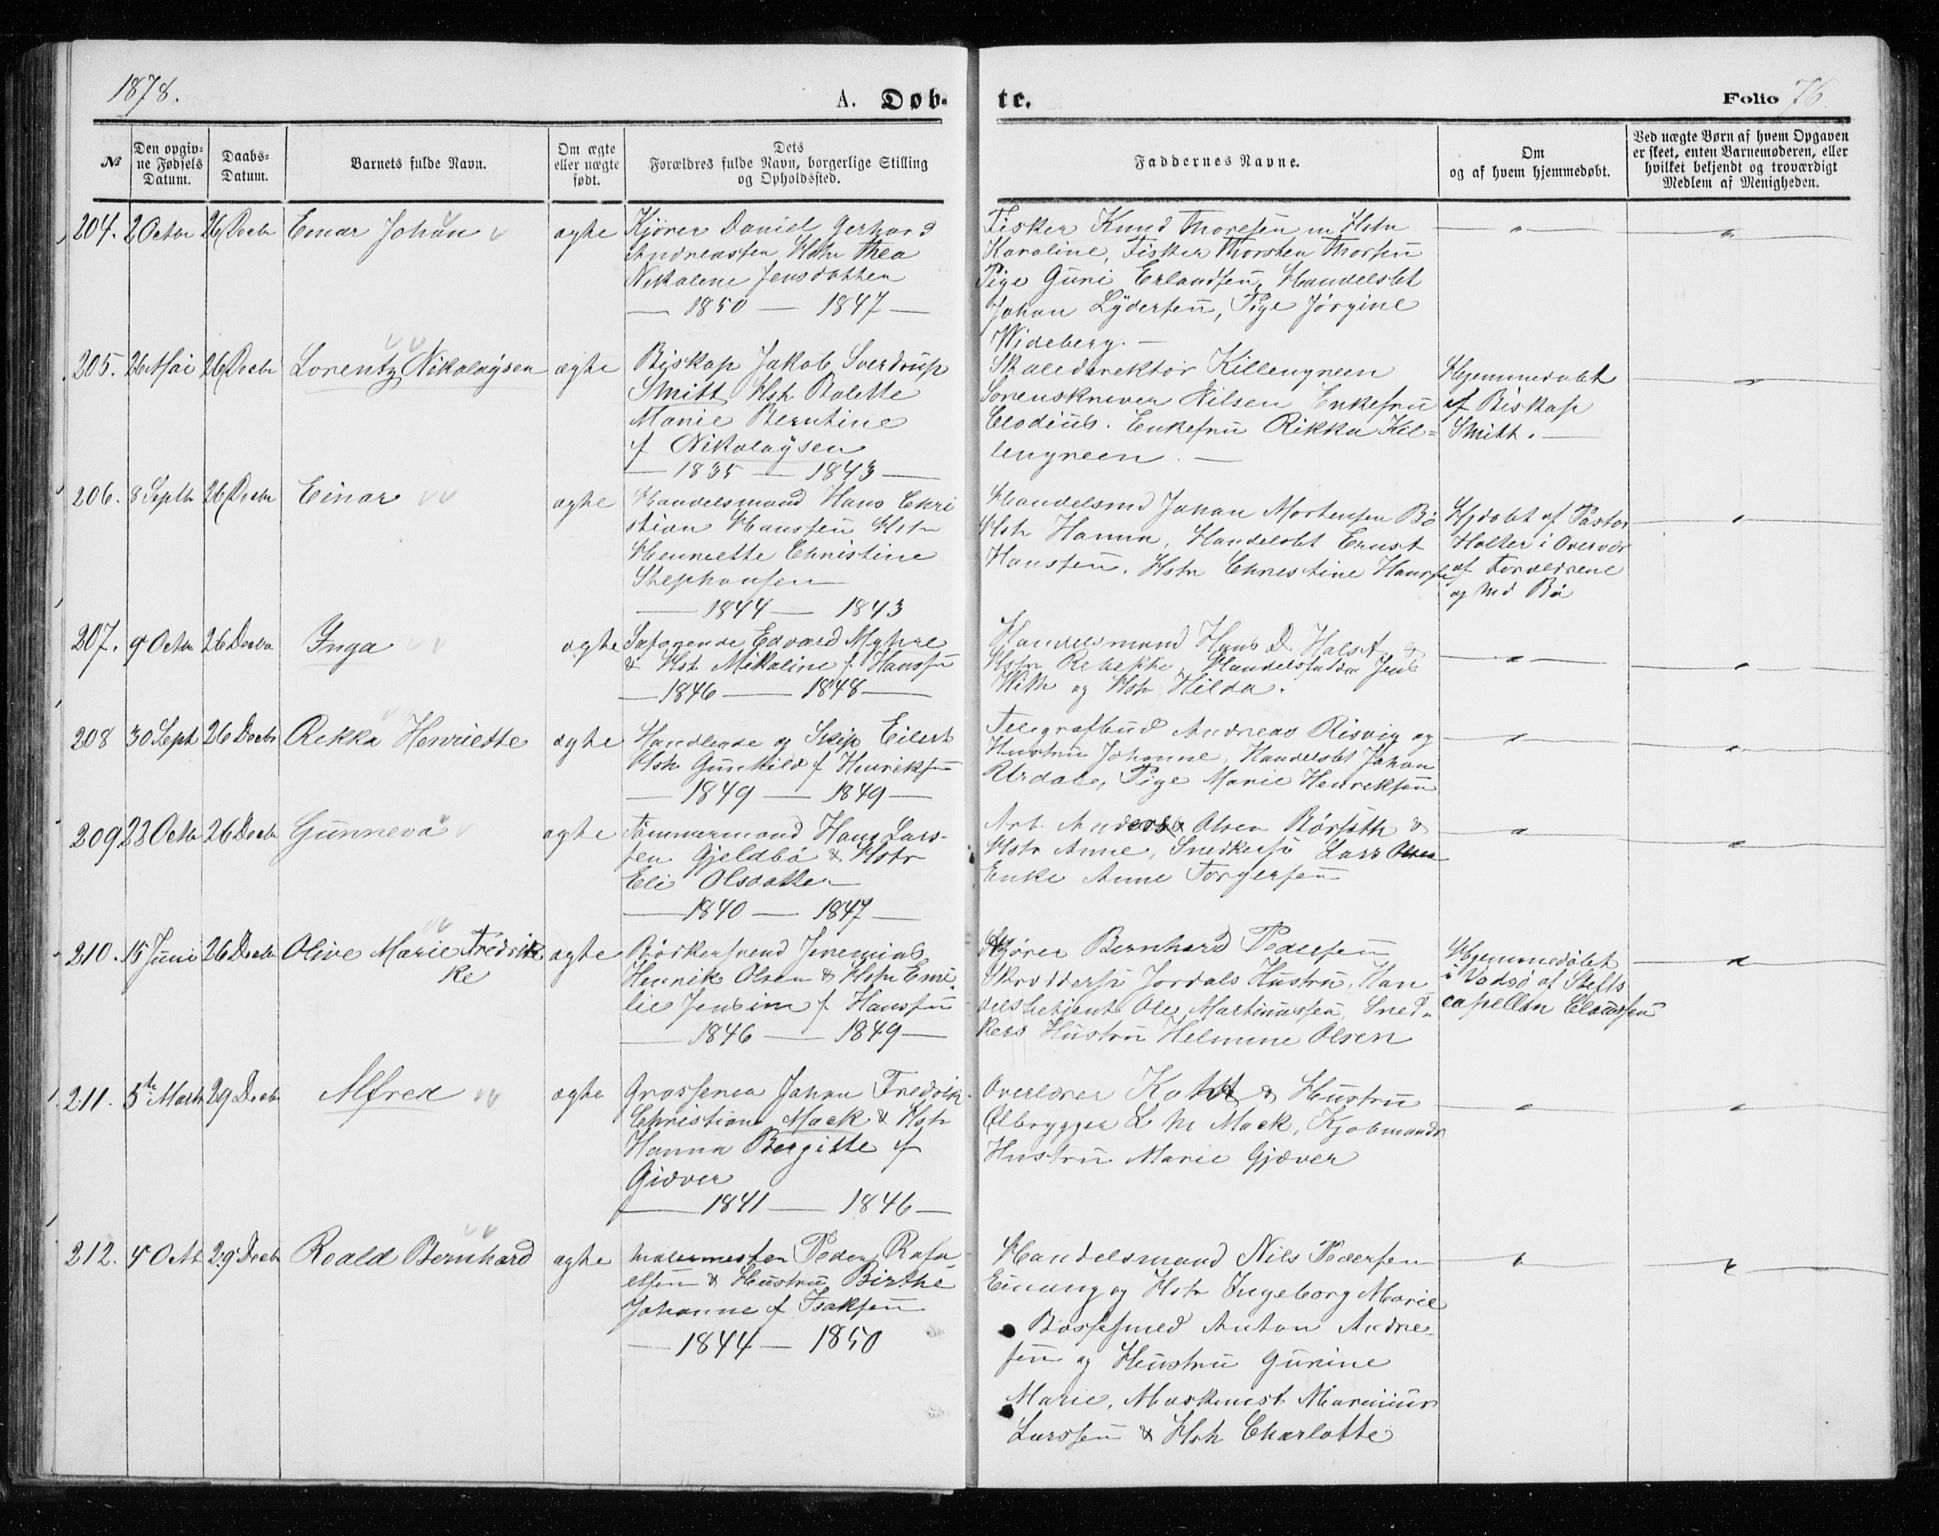 1878.
A. Døb-
te.
Folio 76.
№
Den opgiv-
ne Fødsels
Datum.
Daabs-
Datum.
Barnets fulde Navn.
Om ægte
eller uægte
født.
Dets
Forældres fulde Navn, borgerlige Stilling
og Opholdssted.
Faddernes Navne.
Om
og af hvem hjemmedøbt.
Ved uægte Børn af hvem Opgaven
er skeet, enten Barnemoderen, eller
hvilket bekjendt og troværdigt
Medlem af Menigheden.
204. 2 Octbr 26 Decbr Einar Johan ægte
Kjører Daniel Gerhard
Andreassen Hstr Thea
Nikoline Jensdatter
— 1850 — 1847 —
Fisker Knud Thoresen m Hstr
Karoline, Fisker Thorsten Thorsen
Pige Guri Erlandsen, Handelsbt
Johan Lydersen, Pige Jørgine
Wideberg. —
205. 26 Mai 26 Decbr Lorentz Nikolaysen ægte
Biskop Jakob Sverdrup
Smitt Hstr Bolette
Marie Berntine
f Nikolaysen
— 1835 — 1843 —
Skoledirektør Killengreen
Sorenskriver Nilsen Enkefru
Clodius. Enkefru Rikka Kil-
lengreen —
Hjemmedøbt
af Biskop
Smitt. —
206. 8 Septbr 26 Decbr Einar ægte
Handelsmand Hans Chri
stian Hanssen Hstr
Henriette Christine
Stephansen
— 1844 — 1843
Handelsmd Johan Mortensen Bø
Hstr Hanna, Handelsbt Ernst
Hanssen, Hstr Christine Hanssen
Hjdøbt af Pastor
Holter i Overvær
af Forældrene
og Md Bø
207. 9 Octbr 26 Decbr Inga ægte
Edvard Myhre
& Hstr Mikaline f. Hanssen
— 1846 — 1848 —
Handelsmand Hans D Holst &
Hstr Rebekka, Jens
With og Hstr Hilda.
208 30 Sept 26 Decbr Rikka Henriette ægte
Handlende og Skip Eilert
Hstr Gunhild f Henriksen
— 1849 — 1849 —
Telegrafbud Andreas Risvig og
Hustru Johanne, Handelsbt Johan
Urdal, Pige Marie Henriksen
209 22 Octbr 26 Decbr Gunneva ægte
Tømmermand Hans Lars-
sen Gjeldbø & Hstr
Eli Olsdatter
— 1840 — 1847 —
Arb. Anders Olsen Børseth &
Hstr Anne, Snedkersv Lars Olsen
Enke Anne Torgersen
210. 15 Juni 26 Decbr Olive Marie Fredrik
ke ægte
Bødkersvend Jeremias
Henrik Olsen & Hstr Emi-
lie Jensine f Hanssen
— 1846 — 1849 —
Kjører Bernhard Pedersen
Skræddersv Jordals Hustru, Han
delsbetjent Ole Martinussen, Sned-
kers Hustru Helmine Olsen
Hjemmedøbt
i Vadsø af Stifts
capellan Claussen
211. 5te Marts 29 Decbr Alfred ægte
Grosserer Johan Fredrik
Christian Mack & Hstr
Hanna Bergitte f
Giæver
— 1841 — 1846 —
Overlærer & Hustru
Ølbrygger L M Mack, Kjøbmands
Hustru Marie Gjæver
212. 4 Octb 29 Decbr Roald Bernhard ægte
Malermester Peder Rafa-
elsen & Hustru Birthe
Johanne f Isaksen
— 1844 — 1850
Handelsmand Nils Pedersen
Einang og Hstr Ingeborg Marie
Bøssesmed Anton Andre-
sen og Hustru Gurine
Marie, Maskinist Marinius
Larssen & Hstr Charlotte